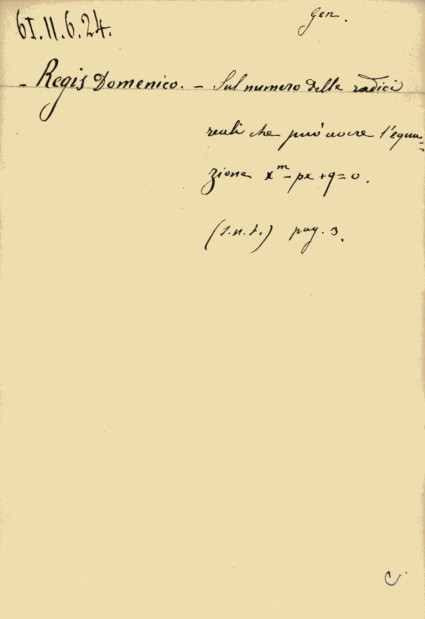 61.11.6.24.
gen.
- Regis Domenico. - Sul numero delle radici
reali che può avere l'equa=
zione x^m - px + q = 0.
(s.n.t.) pag. 3.
C.